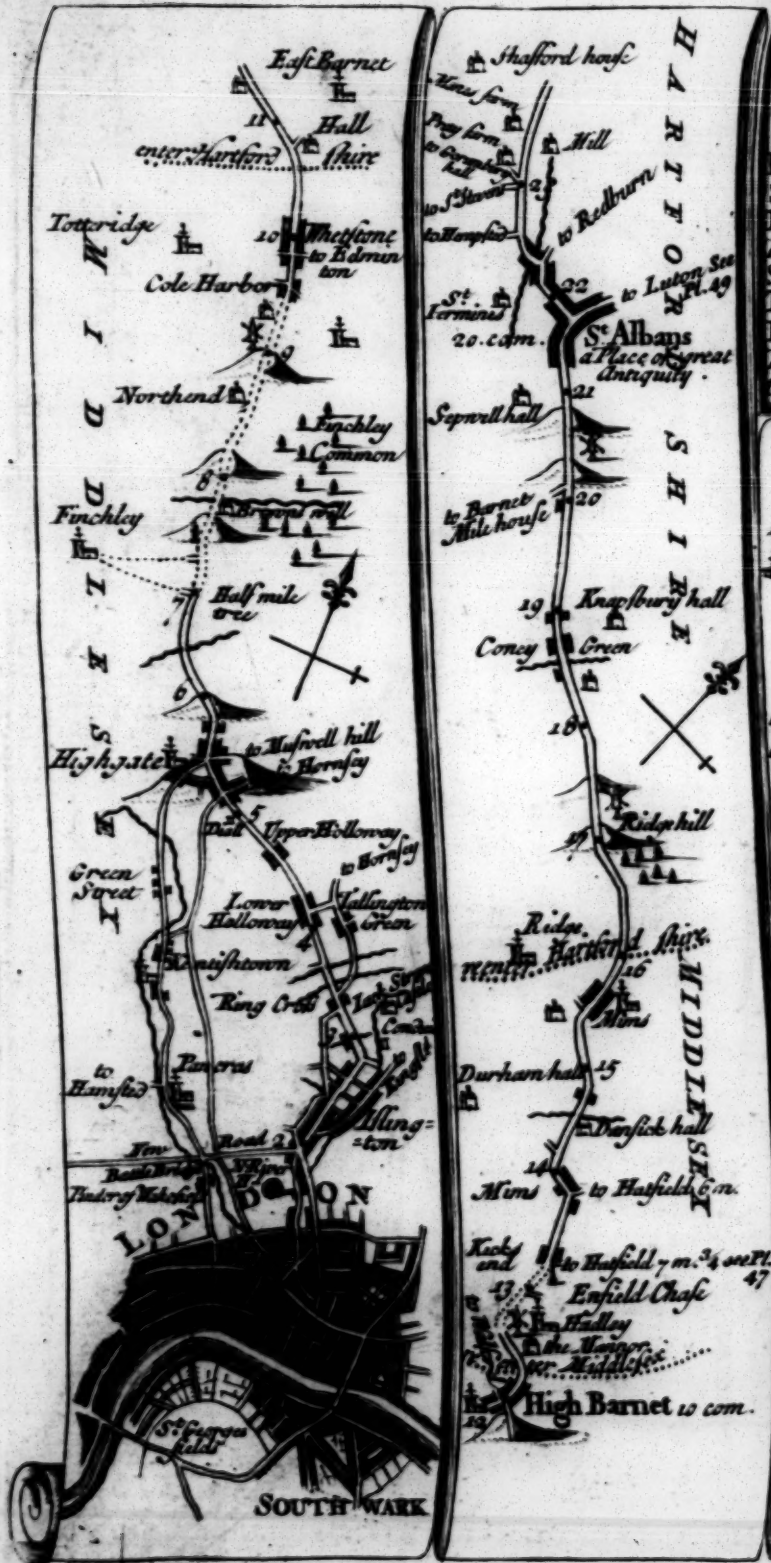 East Barnet
11
Hall
enter Hartford shire
Totteridge
10
Whetstone
to Edmin
ton
Cole Harbor
9
Northend
Finchley
Common
8
Browns well
Finchley
7
Half mile
tree
6
Highgate
to Muswell hill
to Hornsey
5
Upper Holloway
to Hornsey
Green
Street
Lower
Holloway
Tallington
Green
4
Kentishtown
Ring Cross
3
to
Hamsted
Pancras
Isling=
=ton
New Road
2
Battle Bridge
N. River
Pinder of Wakefield
LONDON
St. Georges
fields
SOUTHWARK
MIDDLESEX
Shafford house
Pray farm
to Gorambury
hall
Mill
to St. Stevens
23
to Hempsted
to Redburn
22
to Luton See
Pl. 49
St.
Iermins
20. com.
St. Albans
a Place of great
Antiquity.
21
Sepwell hall
20
to Barnet
Mile house
19
Knapsbury hall
Coney Green
18
17
Ridge hill
Ridge
reenter Hartford shire
16
Mims
15
Durham hall
Dansick hall
14
Mims
to Hatfield 6 m.
Kicks
end
to Hatfield 7 m. 3/4 see Pl.
47
13
Enfield Chase
Hadley
the Mannor
ter Middlesex
High Barnet 10 com.
12
HARTFORD SHIRE
MIDDLESEX